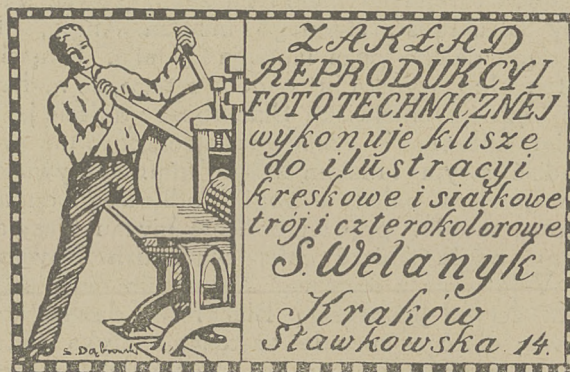 ZAKŁAD
REPRODUKCYI
FOTOTECHNICZNEJ
wykonuje klisze
do ilustracyi
kreskowe i siatkowe
trój. i czterokolorowe
S. Welanyk
Kraków
Sławkowska 14.
S. Dąbrowski